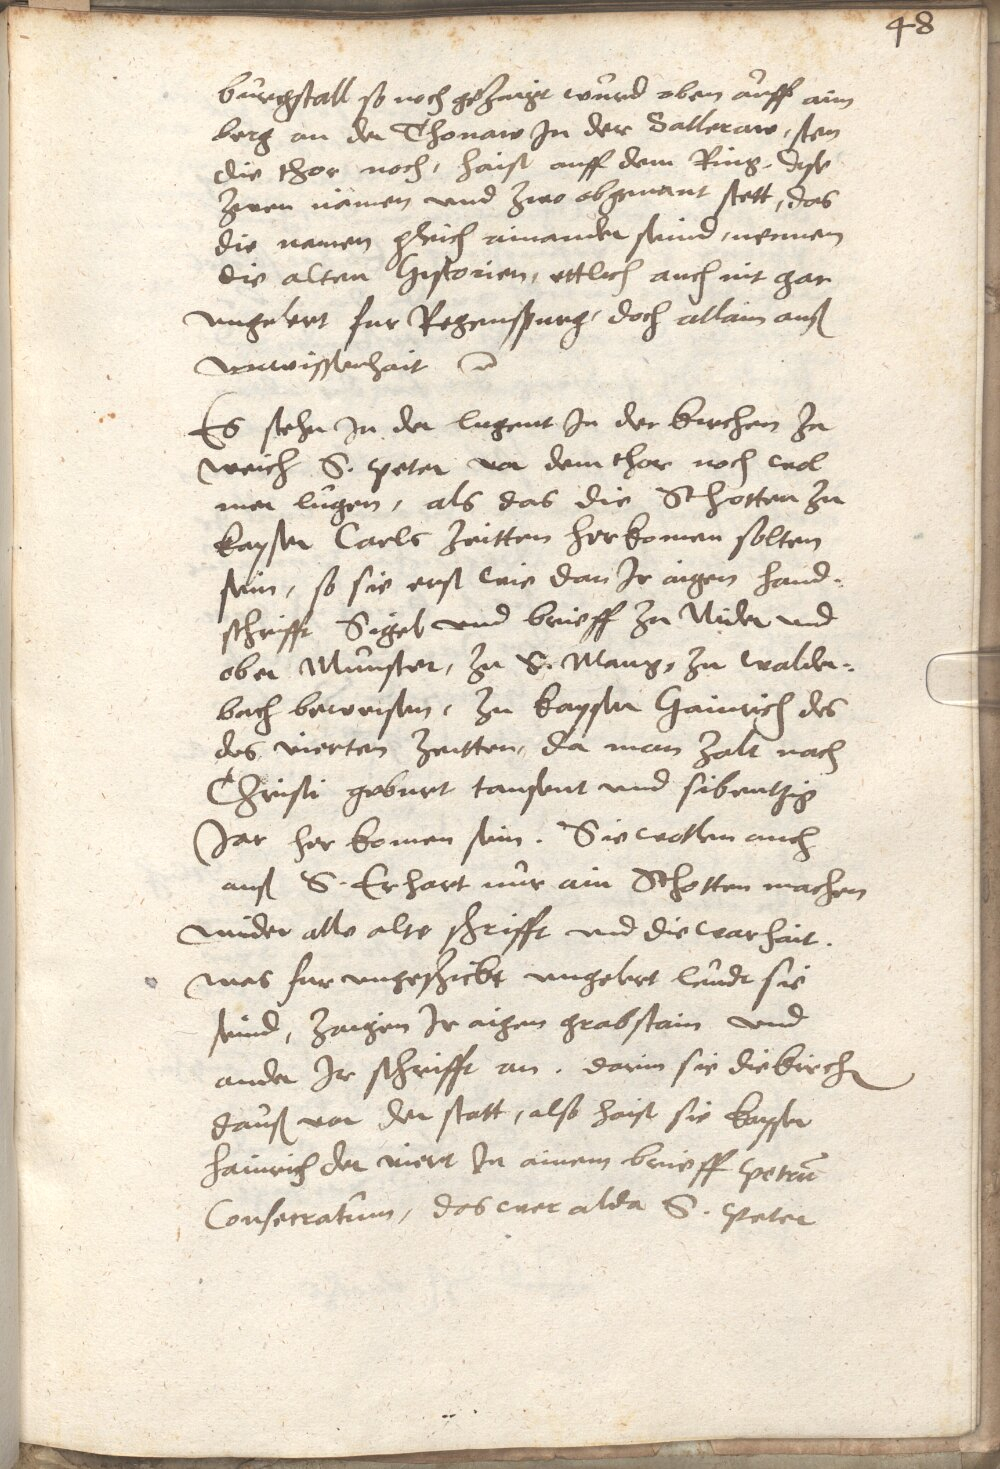 48
burgstall so noch gezaigt wurd oben auff aim
berg an der Thonaw In der Salleraw, sten
die thor noch, haist auff dem Ring. Dise
zwen namen und zwo obgenant stett, das
die namen gleich ainander seind, nennen
die alten Historien, ettlich auch nit gar
ungelert fur Regenspurg, doch allain auß
unwissenhait
Es stehn In der legent In der kirchen zu
weich S. Peter vor dem thor noch vol
mer lugen, als das die Schotten zu
kayser Carls zeitten herkomen solten
sein, so sie erst wie dan Ir aigen hand-
schrifft Sigel und brieff zu Nider und
ober Munster, zu S. Mang, zu walder-
bach beweisen, zu kayser Hainrich des
des vierten zeitten, da man zalt nach
Christi geburt tausent und sibentzig
Jar her komen sein. Sie wollen auch
auß S. Erhart nur ain Schotten machen
wider alle alte schrifft und die warhait.
was fur ungeschickt ungelert leudt sie
seind, zaigen Ir aigen grabstain und
ander Ir schrifft an. darin sie die kirch
dauß vor der statt, also haist sie kayser
hainrich der viert In ainem brieff Petrum
Consecratum, das wer alda S. Peter